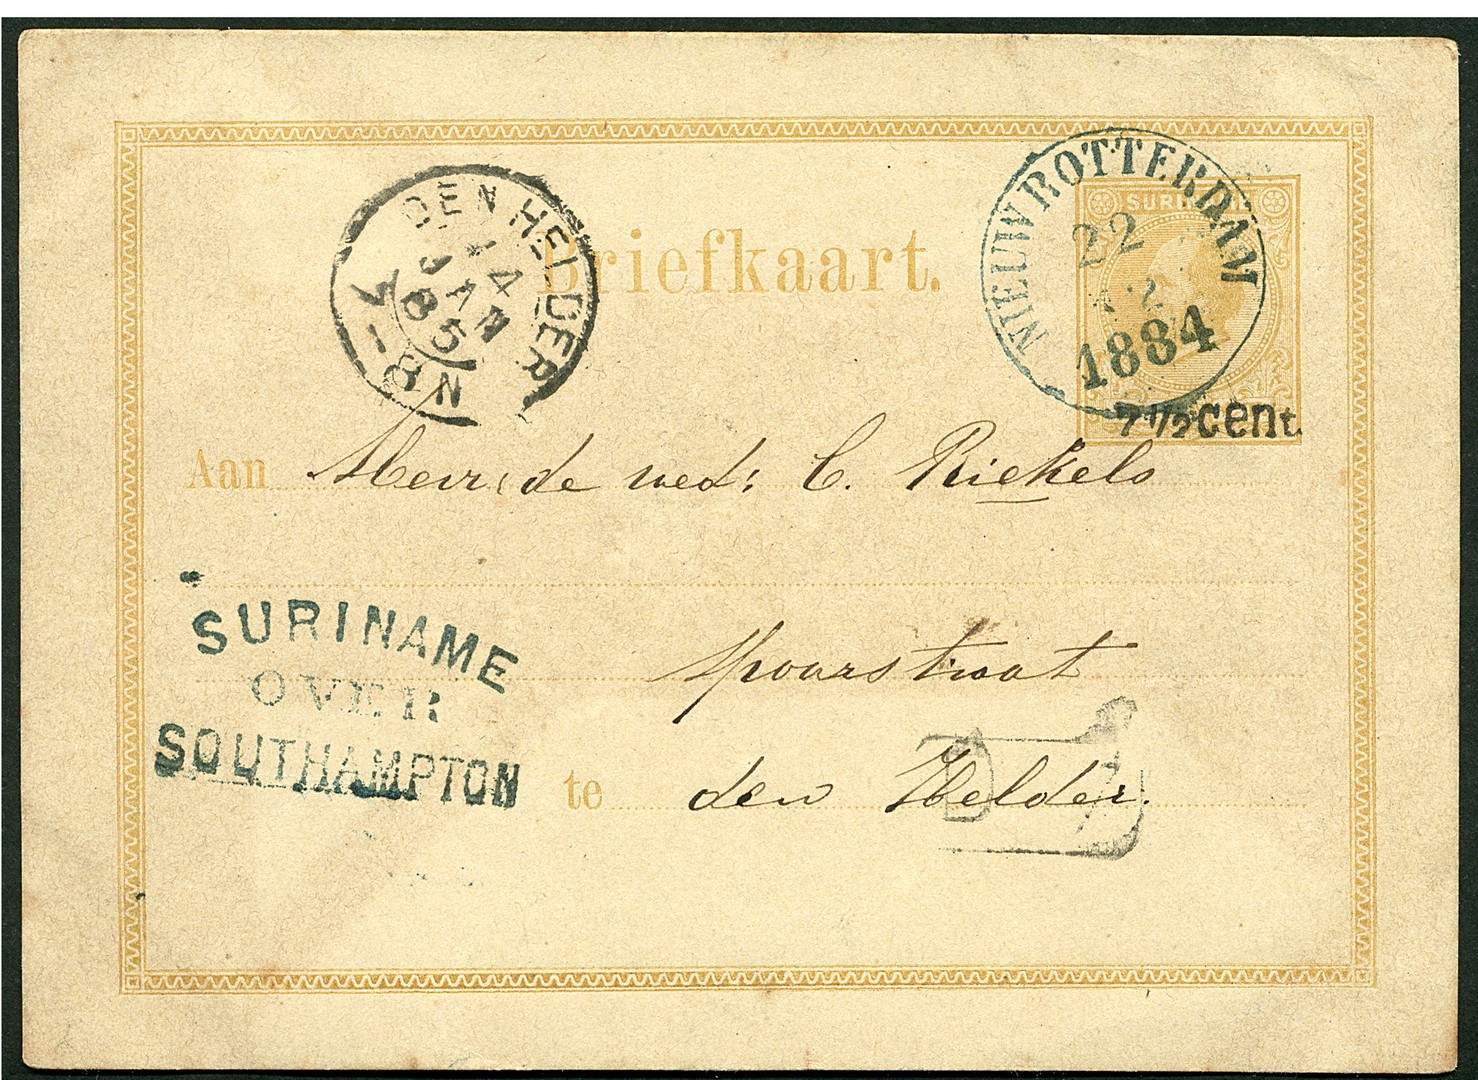 NIEUW ROTTERDAM
22
1884
SURINAME
7 1/2 cent.
DEN HELDER
14
JAN
85
-8N
Briefkaart.
Aan Mevr: de wed: C. Riekels
SURINAME
OVER
SOUTHAMPTON
spoorstraat
te den Helder.
D